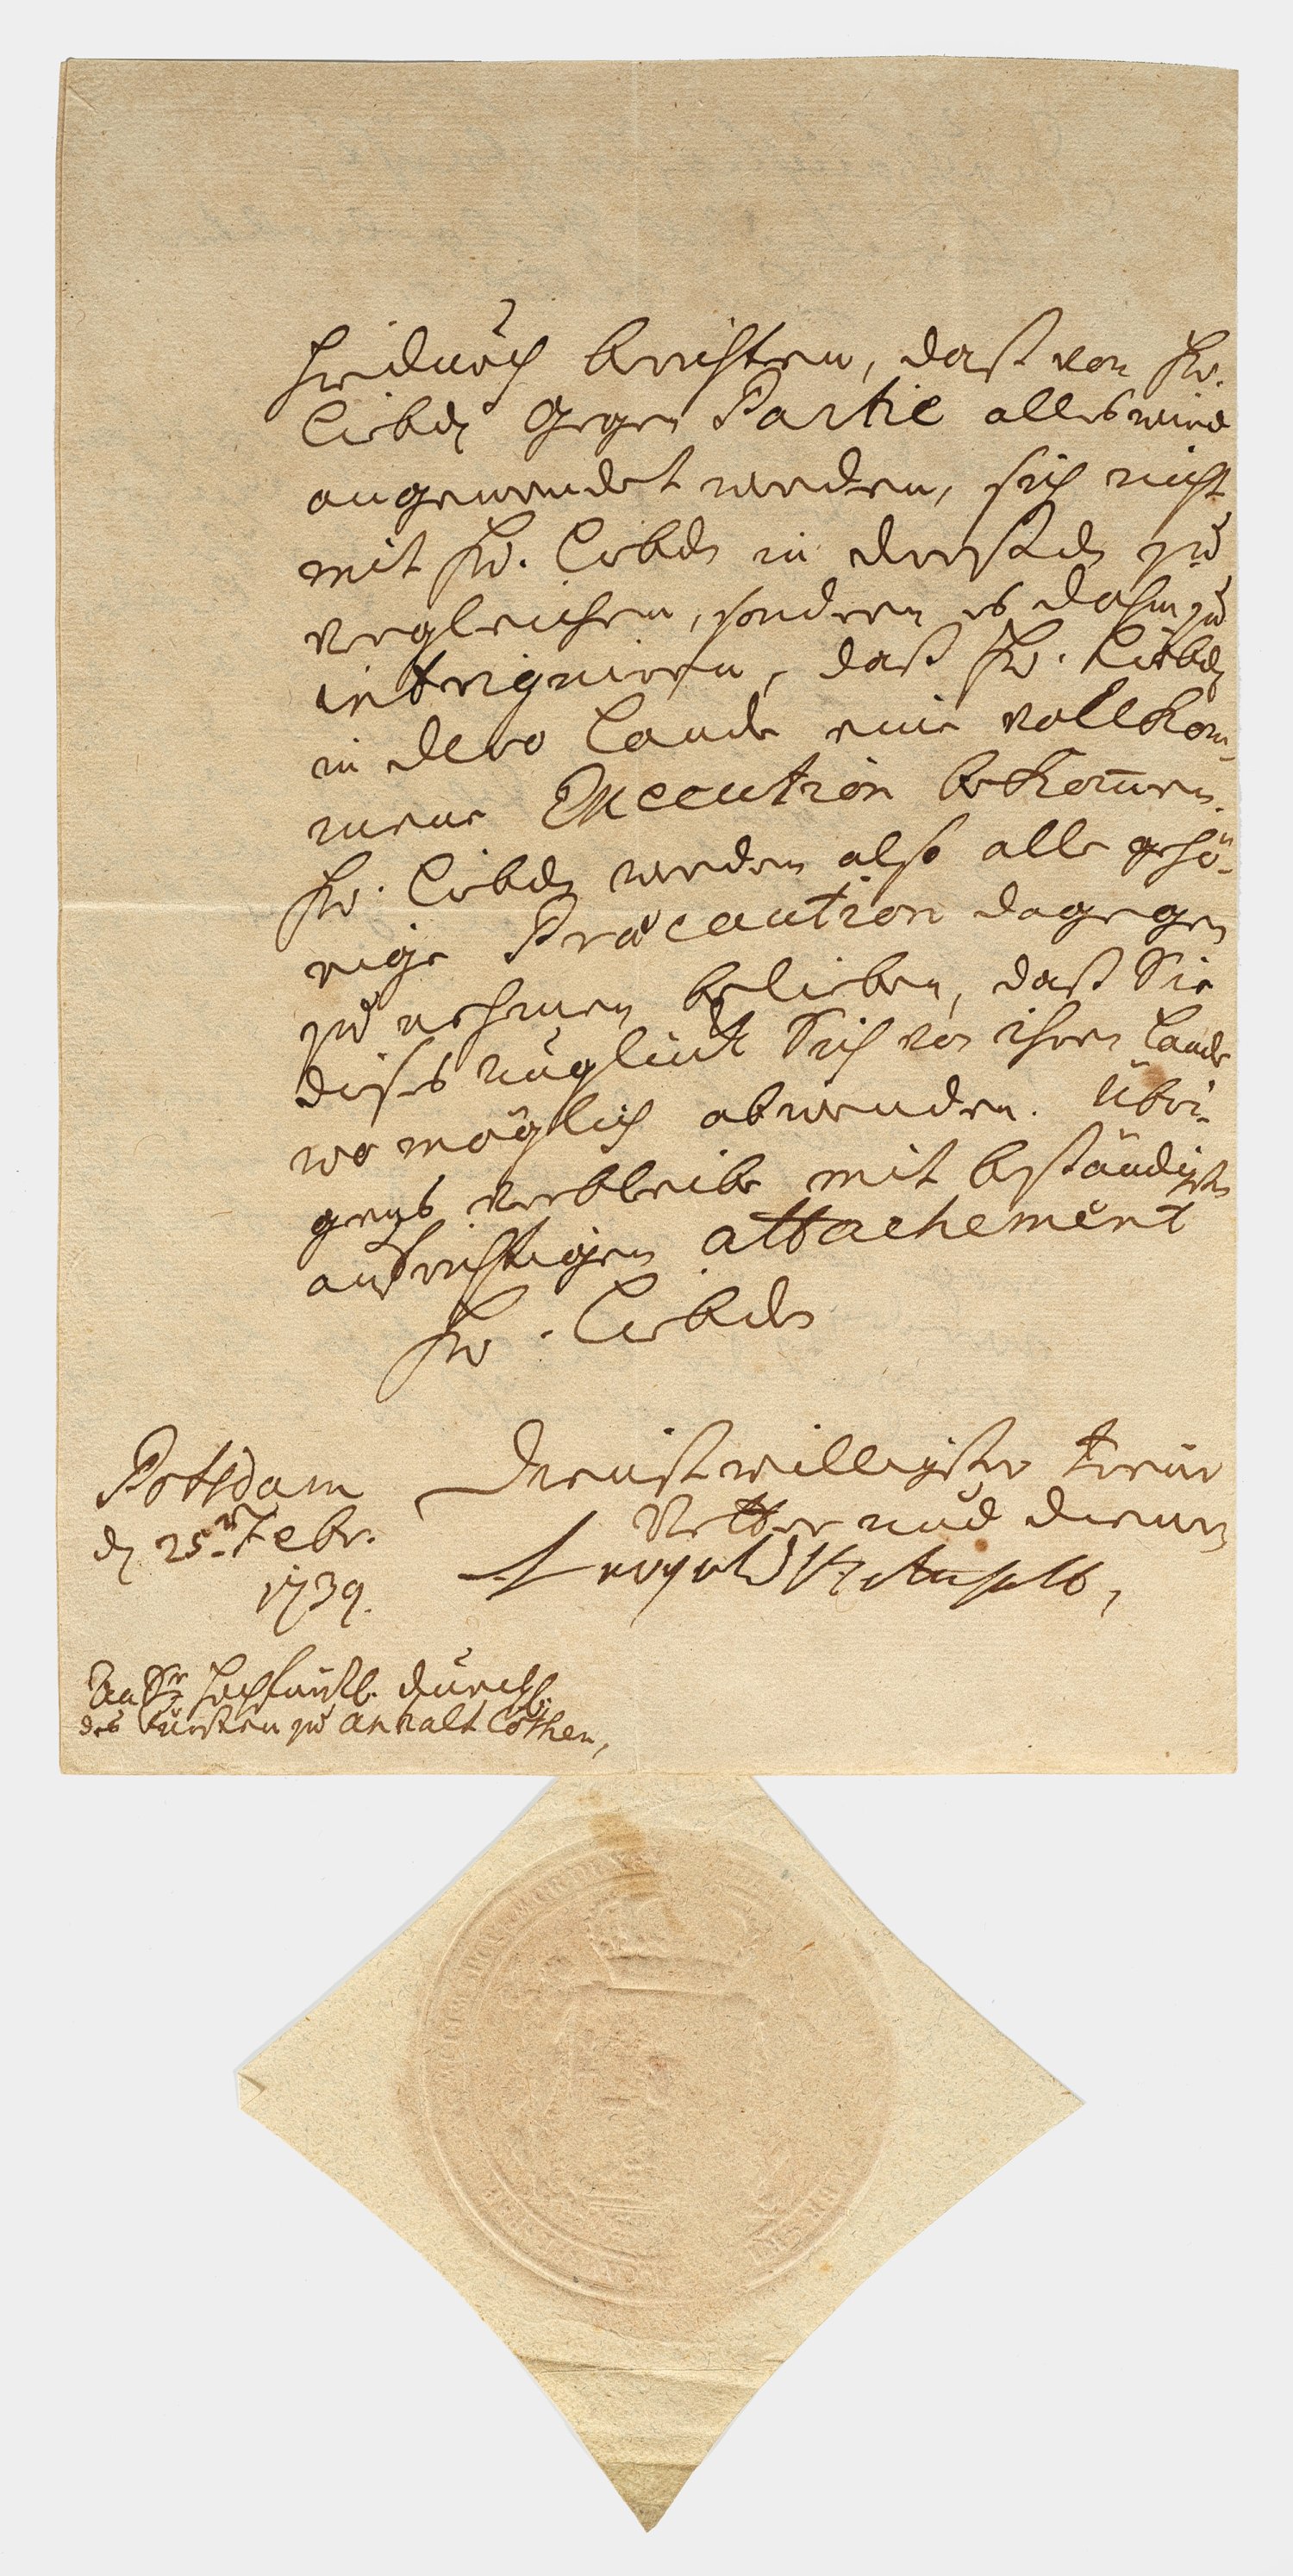 hiedurch berichten, daß von Ew.
Liebd. Gegen Partie alles wird
angewendet werden, sich nicht
mit Ew. Liebden in dreßden zu
vergleichen, sondern es dahin zu
intriguiren, daß Ew. Liebd.
in dero Lande eine vollkom-
mene Execution bekom̄en.
Ew. Liebden werden also alle gehö-
rige Præcaution dagegen
zu nehmen belieben, daß Sie
dieses unglück Sich von ihren Lande
wo möglich abwenden. Übri-
gens verbleibe mit beständigsten
aufrichtigen attachement
Ew. Liebden
Potsdam
d. 25. Febr.
1739.
dienstwilligster treüer
Vetter und diener
Leopold F z Anhallt,
An Sr. Hochfürstl. durchl.
des Fürsten zu Anhalt Cöthen,